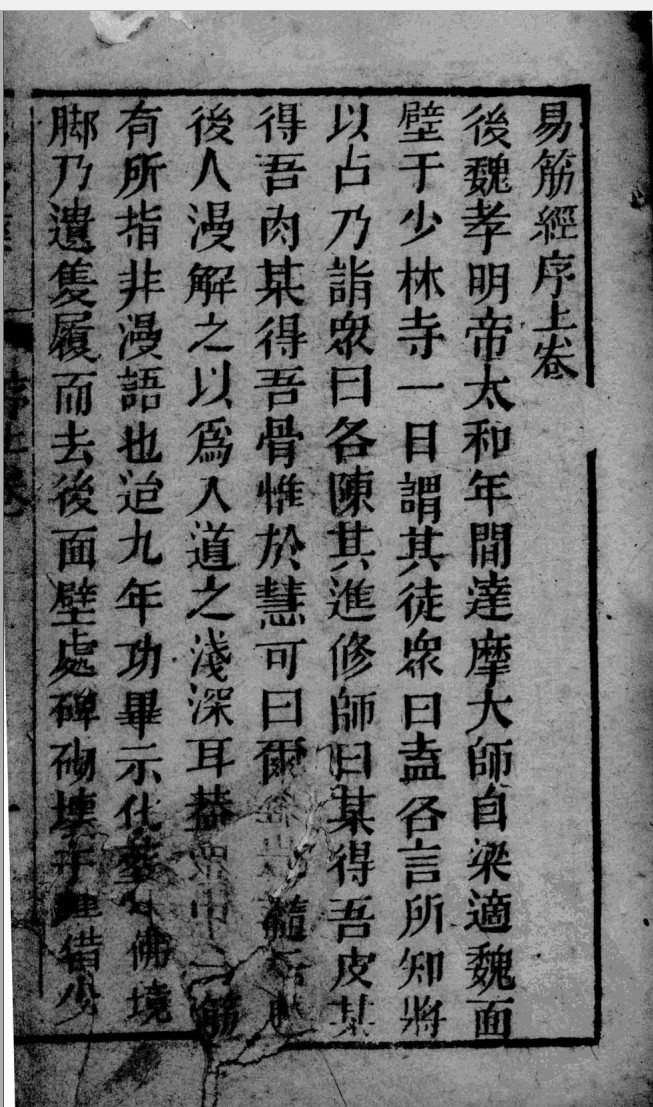 易筋經序上卷
後魏孝明帝太和年間達摩大師自梁適魏面
壁于少林寺一日謂其徒眾曰盍各言所知將
以占乃詣眾曰各陳其進修師曰某得吾皮某
得吾肉某得吾骨惟於慧可曰爾
後人漫解之以為入道之淺深耳葢
有所指非漫語也迨九年功畢示化葬
脚乃遺隻履而去後面壁處碑砌壞于